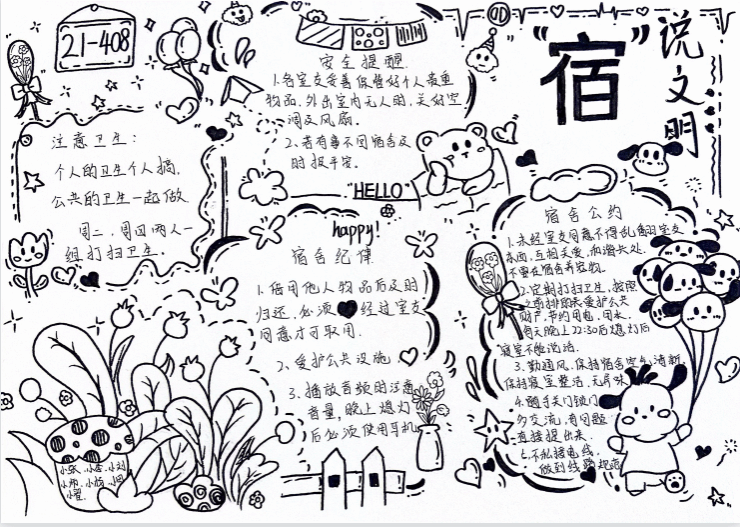 21-408
"宿"
说文明
安全提醒
1.各室友妥善保管好个人贵重
物品,外出室内无人时,关好空
调及风扇。
2、若有事不回宿舍及
时报平安。
注意卫生:
个人的卫生个人搞,
公共的卫生一起做
周二、周四两人一
组打扫卫生。
"HELLO"
happy!
宿舍纪律
1、借用他人物品后及时
归还,必须经过室友
同意才可取用.
2、爱护公共设施
3、播放音频时注意
音量,晚上熄灯
后必须使用耳机
宿舍公约
1.未经室友同意不得乱翻室友
东西,互相关爱,和谐长处.
不要在宿舍养宠物。
2.定期打扫卫生,按照
之前排的表爱护公共
财产,节约用电、用水。
每天晚上22:30后熄灯后
寝室不能说话.
3.勤通风,保持宿舍空气清新,
保持寝室整洁,无异味
4.随手关门锁门
多交流,有问题
直接提出来.
不私接电线.
做到
小张、小李、小刘